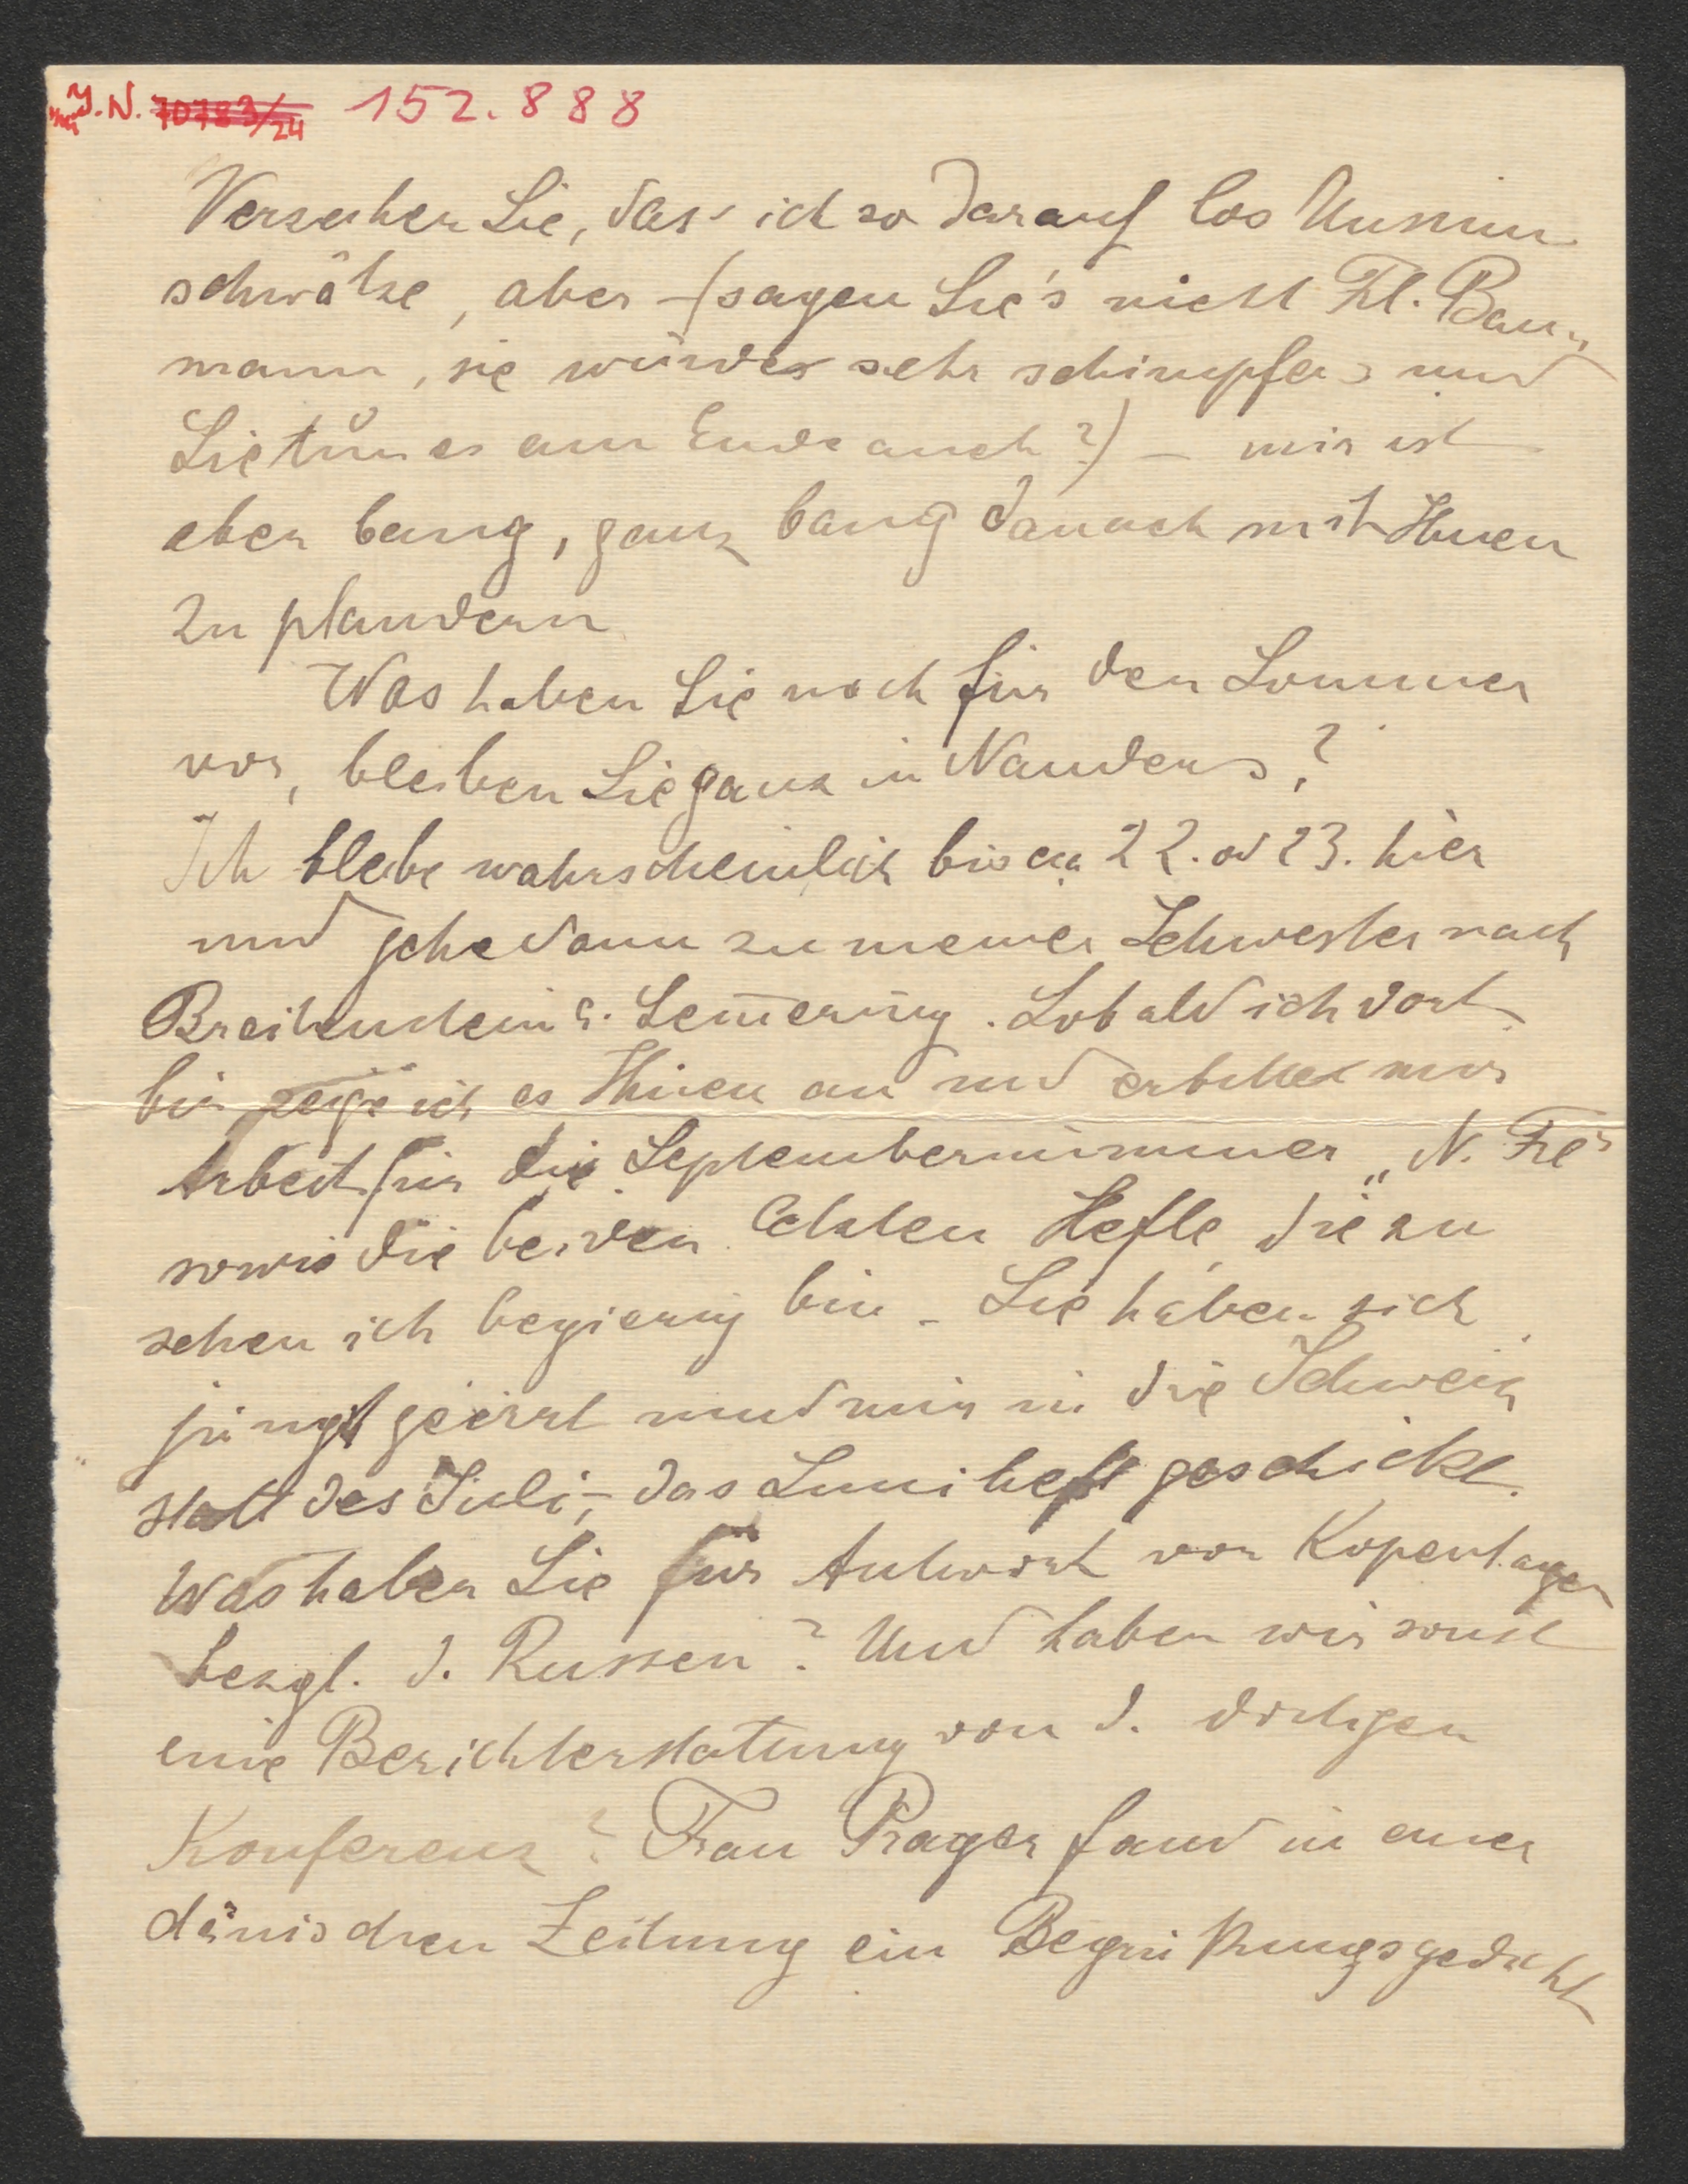 J.N. 70783/24 152.888
Verzeihen Sie, dass ich so darauf los Unsinn
schwätze, aber – (sagen Sie's nicht Frl. Bau-
mann, sie würde sehr schimpfen und
Sie tun es am Ende auch?) – mir ist
aber bang, ganz bang danach mit Ihnen
zu plaudern
Was haben Sie noch für den Sommer
vor, bleiben Sie ganz in Nauders?
Ich bleibe wahrscheinlich bis ca 22. od 23. hier
und gehe dann zu meiner Schwester nach
Breitenstein a. Semmering. Sobald ich dort
bin zeige ich es Ihnen an und erbitte mir
Arbeit für die Septembernummer „N. Frl"
sowie die beiden letzten Hefte, die zu
sehen ich begierig bin – Sie haben sich
jüngst geirrt und mir in die Schweiz
statt des Juli-, das Juniheft geschickt.
Was haben Sie für Antwort von Kopenhagen
bezgl. d. Russen? Und haben wir sonst
eine Berichterstattung von d. dortigen
Konferenz? Frau Prager fand in einer
dänischen Zeitung ein Begrüßungsgedicht